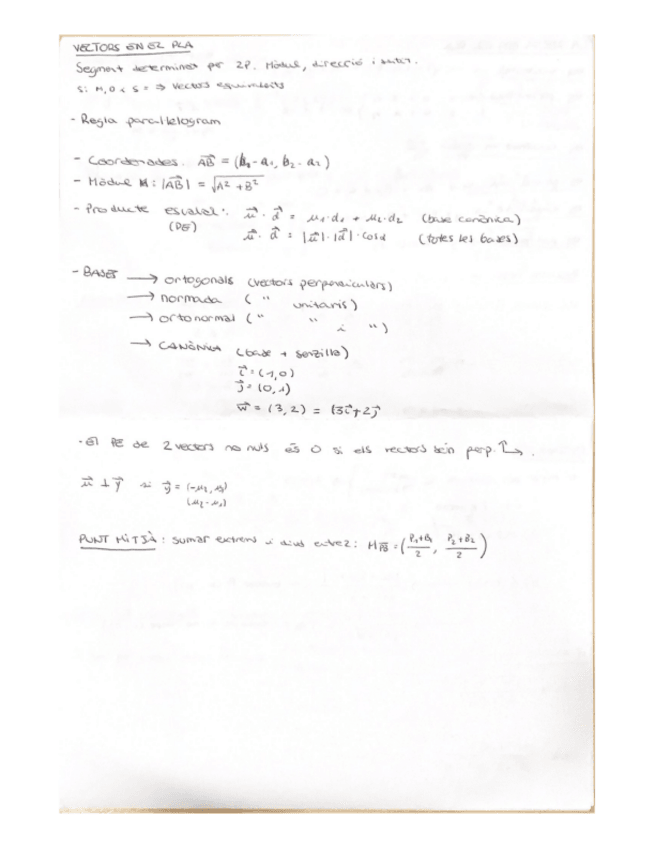 VECTORS EN EL PLA
Segment determinat per 2P. Mòdul, direcció i sentit.
Si M, D i S = ⇒ vectors equipolents
- Regla paral·lelogram
- Coordenades. AB⃗ = (b₁-a₁, b₂-a₂)
- Mòdul M: |AB⃗| = √A²+B²
- Producte escalar: u⃗ · d⃗ = u₁·d₁ + u₂·d₂ (base canònica)
(PE) u⃗ · d⃗ = |u⃗|·|d⃗|·cosα (totes les bases)
- BASES → ortogonals (vectors perpendiculars)
→ normada ( " unitaris)
→ ortonormal ( " " i " )
→ CANÒNICA (base + senzilla)
i⃗ = (1,0)
j⃗ = (0,1)
w⃗ = (3,2) = (3i⃗+2j⃗
· El PE de 2 vectors no nuls és 0 si els vectors són perp.
u⃗ ⊥ y⃗ si y⃗ = (-u₂, u₁)
(u₂-u₁)
PUNT MITJÀ: sumar extrems i dius entre 2: M = (P₁+B₁/2, P₂+B₂/2)